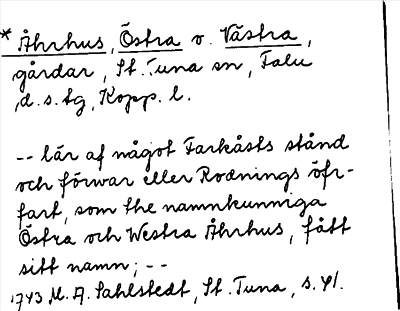 * Åhrhus, Östra o. Västra,
gårdar, St. Tuna sn, Falu
d. s. tg, Kopp. l.
-- lär af något Farkåsts stånd
och förwar eller Rodnings öfr-
fart, som the namnkunniga
Östra och Westra Åhrhus, fått
sitt namn; --
1743 M. A. Sahlstedt, St. Tuna, s. 41.